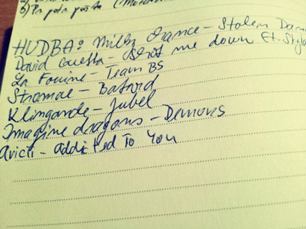 HUDBA: Milky Chance - Stolen Dance
David Guetta - Shot me down ft. Skylar
La Fouine - Team BS
Stromae - Batard
Klingande - Jubel
Imagine dragons - Demons
Avicii - Addicted To You